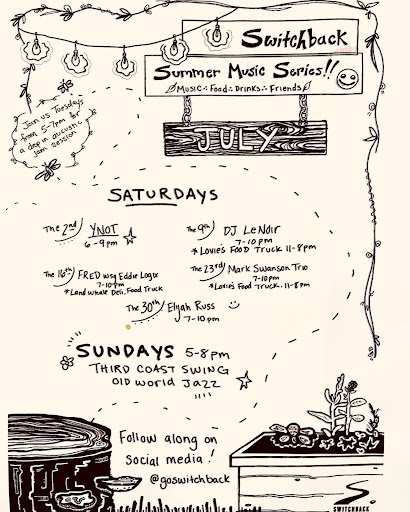 Switchback
Summer Music Series!!
Music · Food · Drinks · Friends
JULY
Join us Tuesdays
from 5-7pm for
a drop in acoustic
jam session
SATURDAYS
The 2nd YNOT
6-9pm
The 9th DJ LeNoir
7-10pm
*Lovie's FOOD TRUCK 11-8pm
The 16th FRED wsg Eddie Logix
7-10pm
*Land Whale Deli. Food Truck
The 23rd Mark Swanson Trio
7-10pm
*Lovie's Food Truck. 11-8pm
The 30th Elijah Russ
7-10 pm
SUNDAYS 5-8pm
THIRD COAST SWING
Old World JAZZ
Follow along on
social media!
@goswitchback
SWITCHBACK